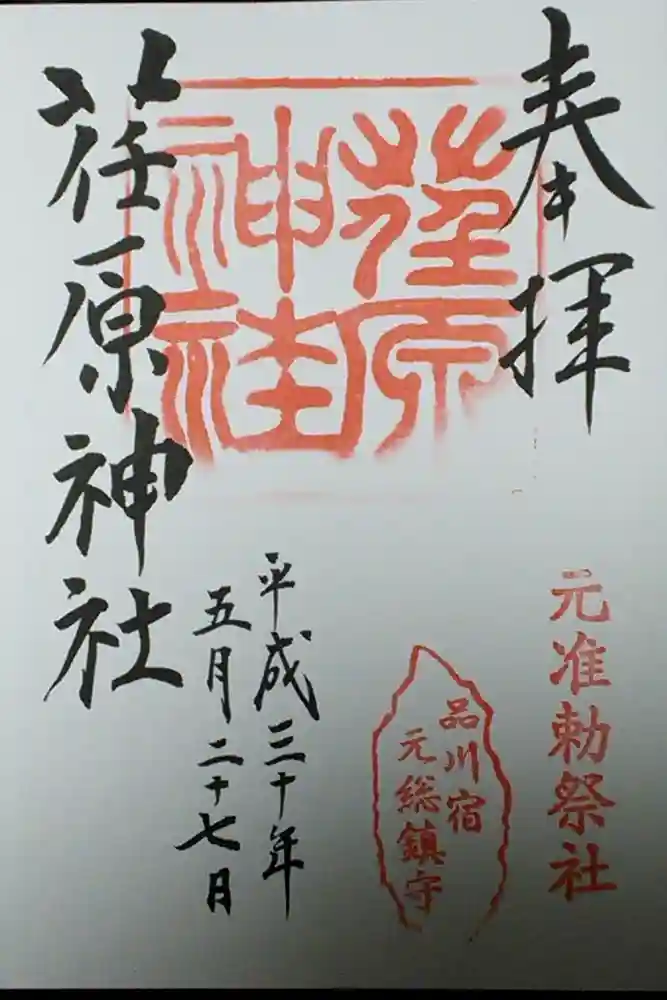 奉拝
元准勅祭社
品川宿
元総鎮守
荏原
神社
平成三十年
五月二十七日
荏原神社